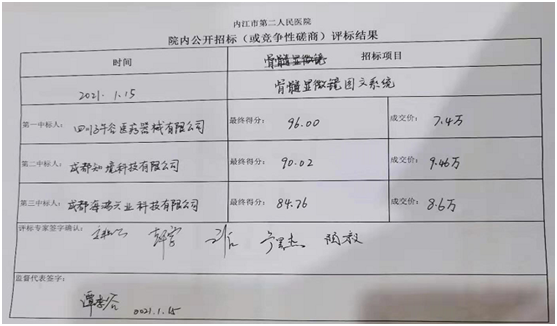 内江市第二人民医院
院内公开招标（或竞争性磋商）评标结果
时间 骨髓显微镜 招标项目
2021.1.15 骨髓显微镜图文系统
第一中标人： 有限公司 最终得分： 96.00 成交价： 7.4万
第二中标人： 成都知境科技有限公司 最终得分： 90.02 成交价： 9.46万
第三中标人： 成都海鸿兴业科技有限公司 最终得分： 84.76 成交价： 8.6万
评标专家签字确认：
监督代表签字：
0021.1.15